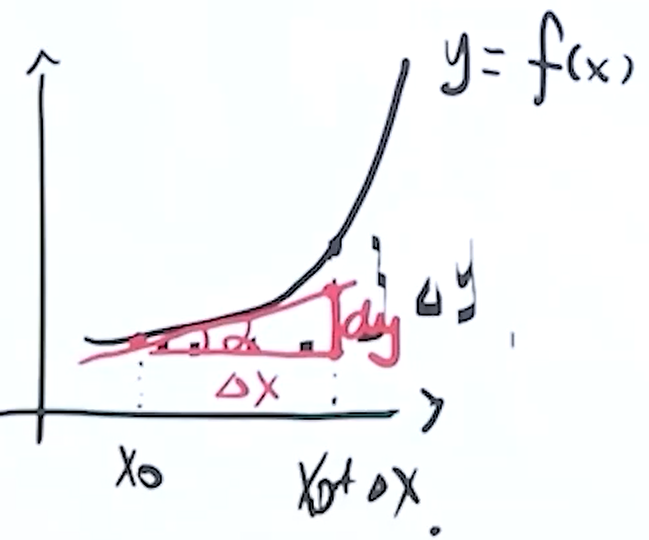 y = f(x)
Δy
dy
α
Δx
x₀
x₀+Δx